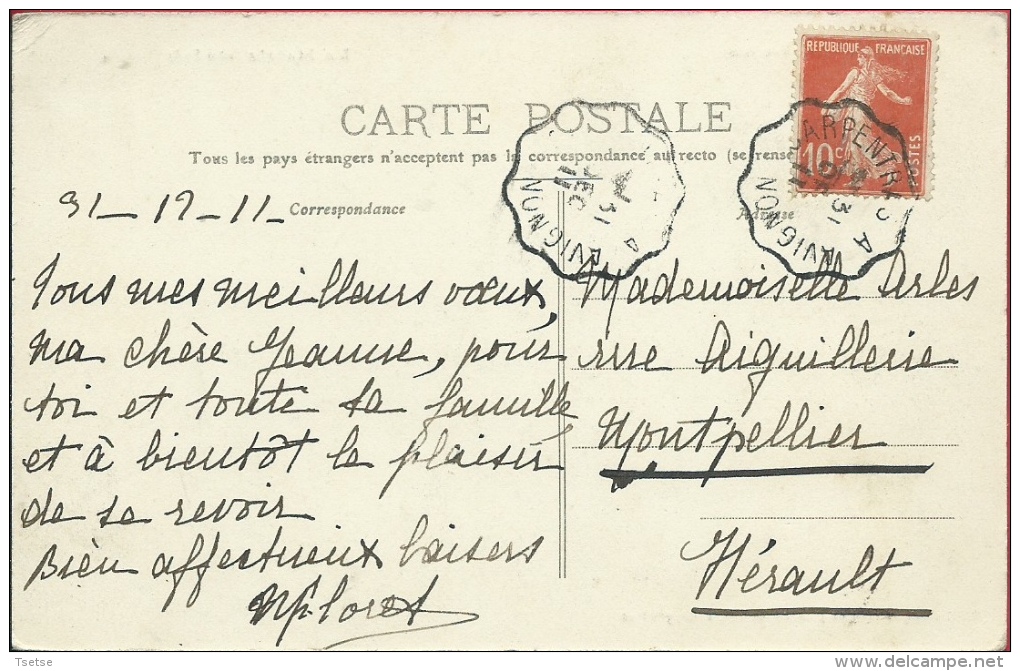 REPUBLIQUE FRANÇAISE
10c POSTES
CARTE POSTALE
Tous les pays étrangers n'acceptent pas la correspondance au recto (se rense
31-12-11
Correspondance
Adresse
31 DEC 11
CARPENTRAS A AVIGNON
31
Tous mes meilleurs vœux,
ma chère Jeanne, pour
toi et toute ta famille,
et à bientôt le plaisir
de se revoir
Bien affectueux baisers
Mademoiselle Arles
rue Aiguillerie
Montpellier
Hérault
Tsetse
delcampe.net